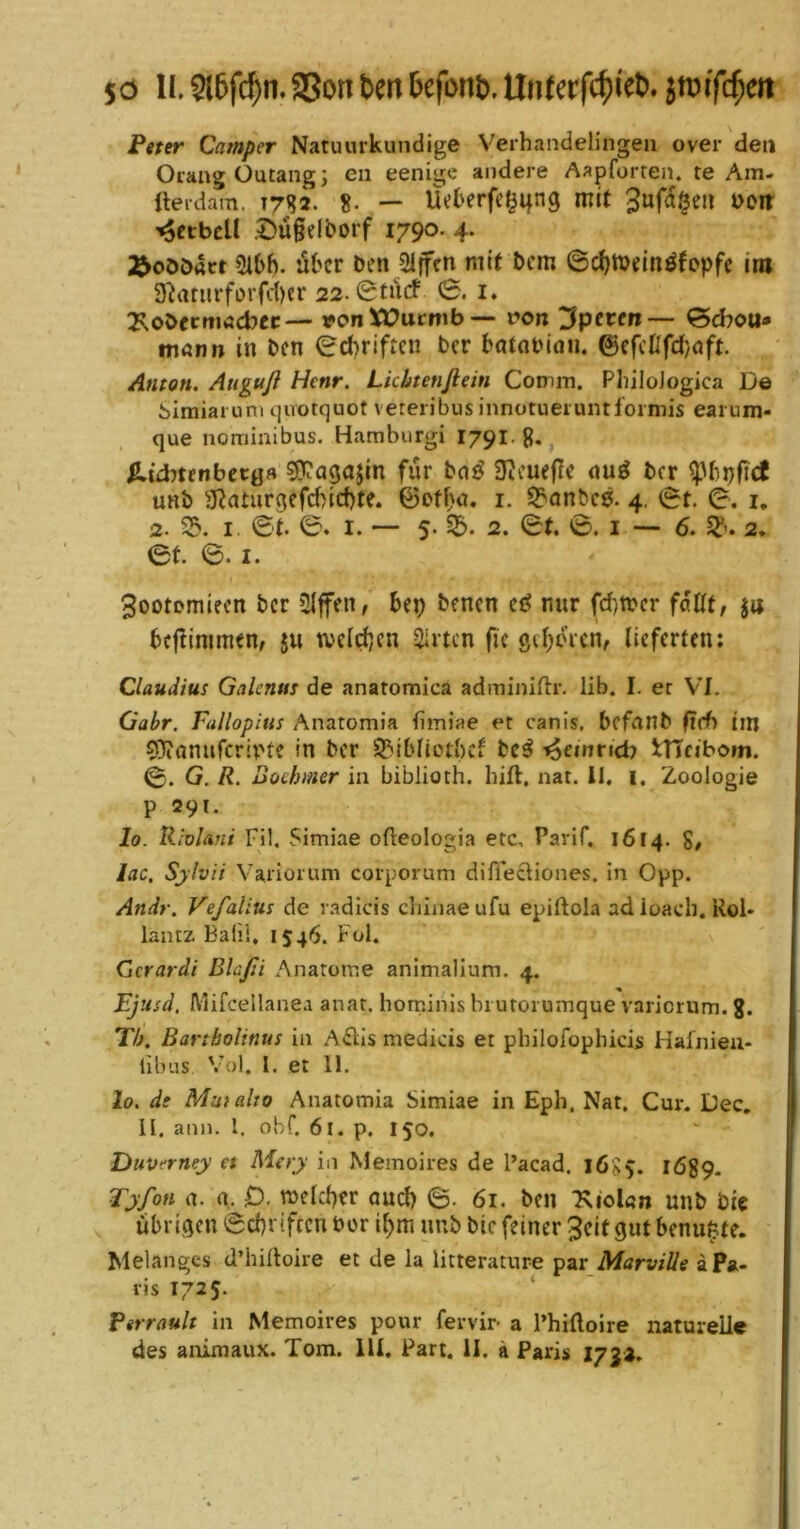 50 II. Abſchn. Von den beſond. Unterſchied. zwiſchen
Peter Camper Natuurkundige Verhandelingen over den
Orang Outang; en eenige andere Aapſorten. te Am-
ſterdam. 1782. 8. — Ueberſetzung mit Zuſätzen von
Herbell Düßeldorf 1790. 4.
Boddärt Abh. über den Affen mit dem Schweinskopfe im
Naturforſcher 22. Stück S. 1.
Radermacher — von Wurmb — von Iperen — Schou-
mann in den Schriften der batavian. Geſellſchaft.
Anton. Auguſt Henr. Lichtenſtein Comm. Philologica De
Simiarum quotquot veteribus innotuerunt formis earum-
que nominibus. Hamburgi 1791. 8.
Lichtenbergs Magazin für das Neueſte aus der Phyſick
und Naturgeſchichte. Gotha. 1. Bandes. 4. St. S. 1.
2. B. 1. St. S. 1. — 5. B. 2. St. S. 1 — 6. B. 2.
St. S. 1.
Zootomieen der Affen, bey denen es nur ſchwer fällt, zu
beſtimmen, zu welchen Arten ſie gehören, lieferten:
Claudius Galenus de anatomica adminiſtr. lib. I. et VI.
Gabr. Fallopius Anatomia ſimiae et canis. befand ſich im
Manuſcripte in der Bibliothek des Heinrich Meibom.
S. G. R. Boehmer in biblioth. hiſt. nat. II. 1. Zoologie
p 291.
Io. Riolani Fil. Simiae oſteologia etc. Pariſ. 1614. 8,
Iac. Sylvii Variorum corporum diſſectiones. in Opp.
Andr. Veſalius de radicis chinae uſu epiſtola ad Ioach. Rol-
lantz Baſil. 1546. Fol.
Gerardi Blaſii Anatome animalium. 4.
Ejusd. Miſcellanea anat. hominis brutorumque variorum. 8.
Th. Bartholinus in Actis medicis et philoſophicis Hafnien-
ſibus. Vol. I. et II.
Io. de Muralto Anatomia Simiae in Eph. Nat. Cur. Dec.
II. ann. 1. obſ. 61. p. 150.
Duverney et Mery in Memoires de l'acad. 1685. 1689.
Tyſon a. a. O. welcher auch S. 61. den Riolan und die
übrigen Schriften vor ihm und die ſeiner Zeit gut benutzte.
Melanges d'hiſtoire et de la litterature par Marville à Pa-
ris 1725.
Perrault in Memoires pour ſervir a l'hiſtoire naturelle
des animaux. Tom. III. Part. II. à Paris 1732.